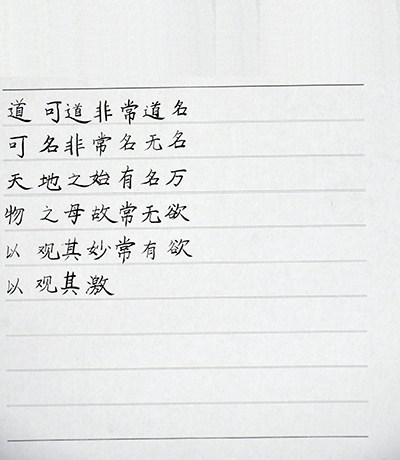 道可道非常道名
可名非常名无名
天地之始有名万
物之母故常无欲
以观其妙常有欲
以观其激